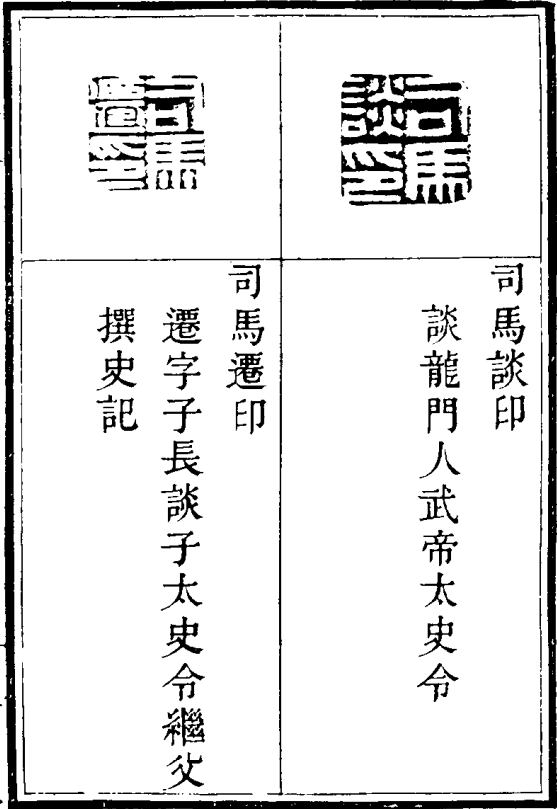 司馬談印
司馬談印
談龍門人武帝太史令
司馬遷印
司馬遷印
遷字子長談子太史令繼父
撰史記